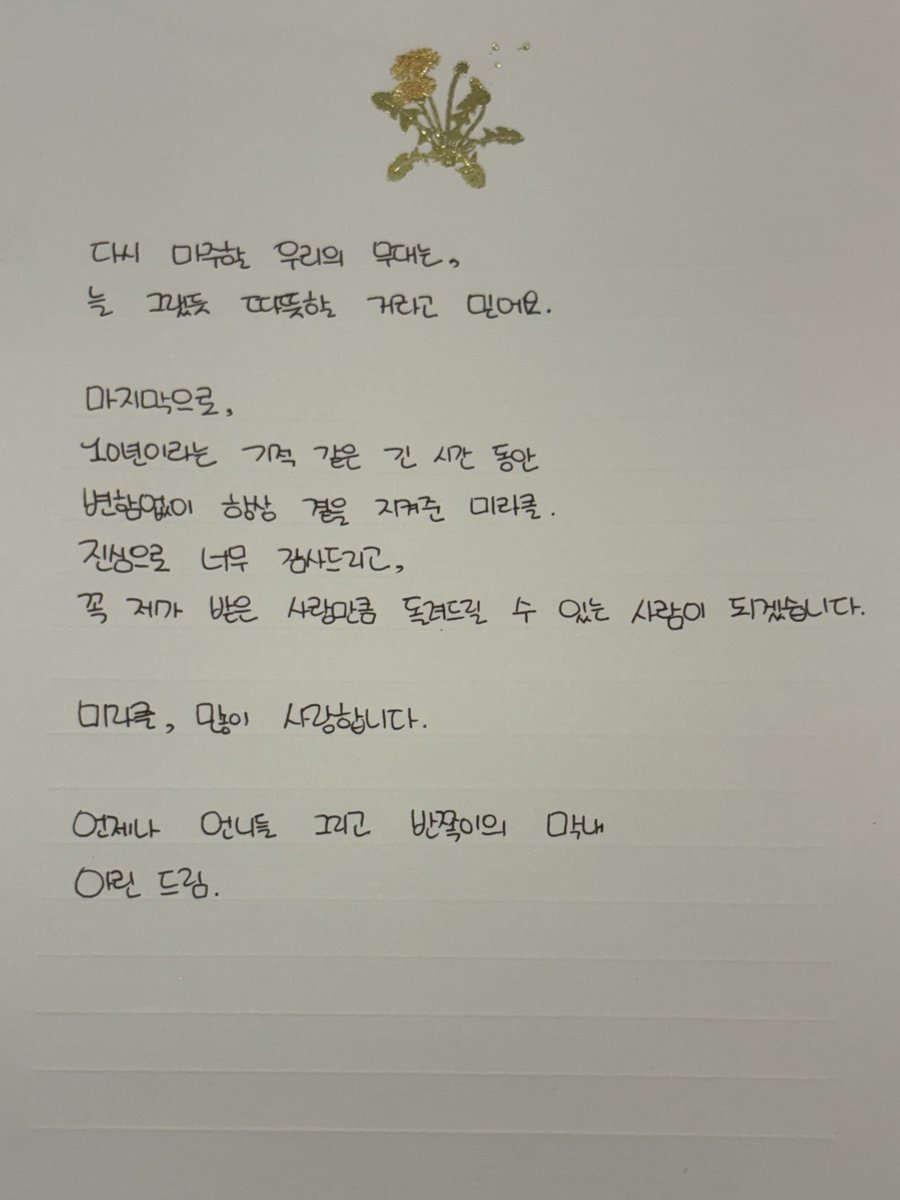 다시 마주할 우리의 무대는,
늘 그랬듯 따뜻할 거라고 믿어요.
마지막으로,
10년이라는 기적 같은 긴 시간 동안
변함없이 항상 곁을 지켜준 미라클.
진심으로 너무 감사드리고,
꼭 제가 받은 사랑만큼 돌려드릴 수 있는 사람이 되겠습니다.
미라클, 많이 사랑합니다.
언제나 언니들 그리고 반쪽이의 막내
아린 드림.